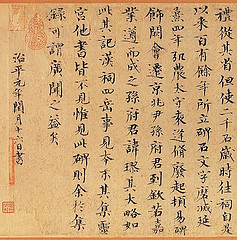 禮從其省但使二千石歲時往祠自是
以來百有餘年所立碑石文字磨滅延
熹四年弘農太守袁逢修廢起頓易碑
飾闕會遷京兆尹孫府君到欽若嘉
業遵而成之孫府君諱璆其大略如
此其記漢祠四岳事見本末其集靈
宮他書皆不見惟見此碑則余於集
錄可謂廣聞之益矣
治平元年閏月十六日書